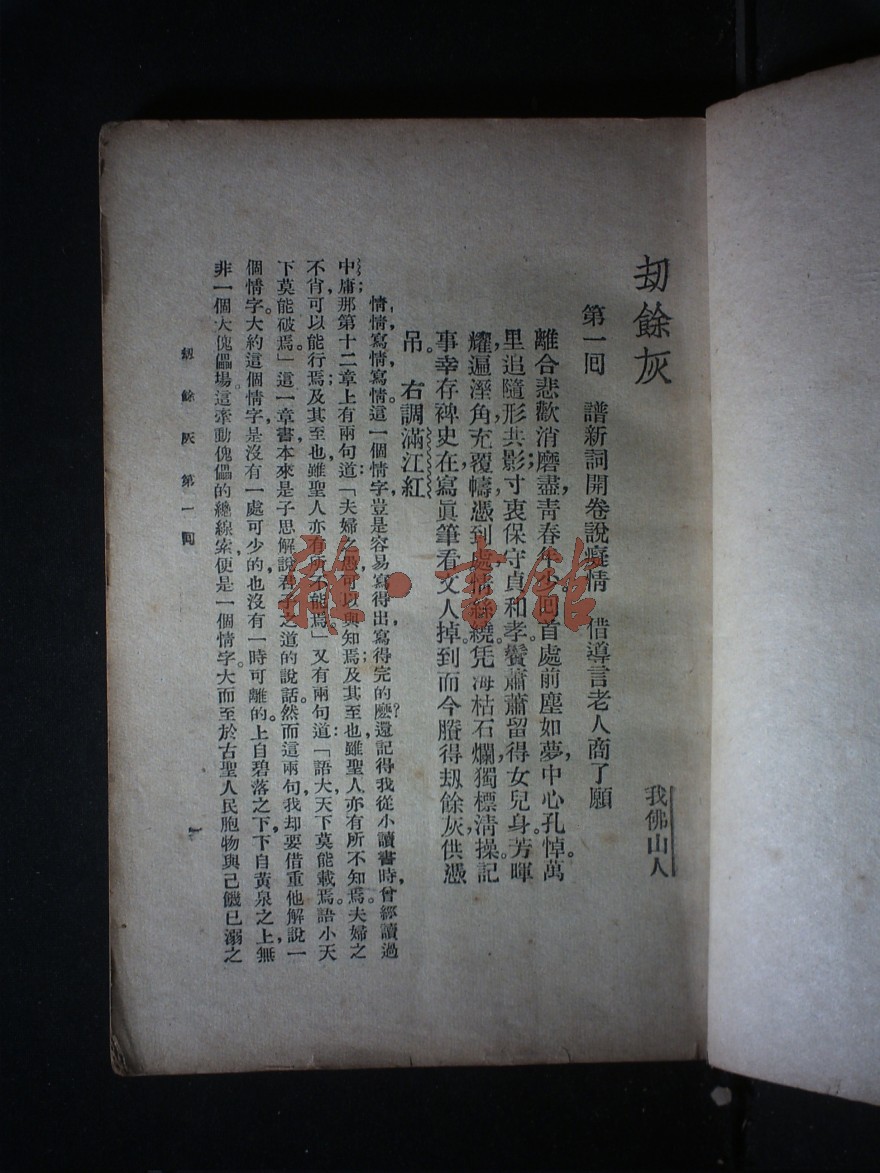 刧餘灰
我佛山人
第一囘　譜新詞開卷說癡情　借導言老人商了願
離合悲歡消磨盡，靑春年少。囘首處前塵如夢，中心孔悼。萬
里追隨形共影；寸衷保守貞和孝。鬢蕭蕭留得女兒身，芳暉
耀。遍溼角，充覆幬，憑到處，情絲繞。凭海枯石爛，獨標淸操。記
事幸存稗史在，寫眞筆看文人掉。到而今賸得刼餘灰，供憑
吊。　右調滿江紅
情，情，寫情，寫情。這一個情字，豈是容易寫得出，寫得完的麽？還記得我從小讀書時，曾經讀過
中庸；那第十二章上有兩句道：「夫婦之愚，可以與知焉；及其至也，雖聖人亦有所不知焉。夫婦之
不肖，可以能行焉；及其至也，雖聖人亦有所不能焉。」又有兩句道：「語大，天下莫能載焉。語小，天
下莫能破焉。」這一章書，本來是子思解說君子之道的說話。然而這兩句，我却要借重他解說一
個情字。大約這個情字，是沒有一處可少的，也沒有一時可離的。上自碧落之下，下自黃泉之上，無
非一個大傀儡場。這牽動傀儡的總線索，便是一個情字。大而至於古聖人民胞物與，己饑己溺之
刼餘灰　第一囘
一
雜·書館